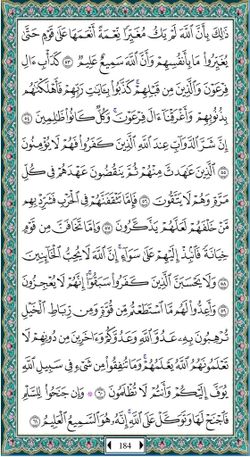 ذَٰلِكَ بِأَنَّ ٱللَّهَ لَمْ يَكُ مُغَيِّرًا نِّعْمَةً أَنْعَمَهَا عَلَىٰ قَوْمٍ حَتَّىٰ
يُغَيِّرُوا۟ مَا بِأَنفُسِهِمْ ۙ وَأَنَّ ٱللَّهَ سَمِيعٌ عَلِيمٌ ٥٣ كَدَأْبِ ءَالِ
فِرْعَوْنَ ۙ وَٱلَّذِينَ مِن قَبْلِهِمْ ۚ كَذَّبُوا۟ بِـَٔايَـٰتِ رَبِّهِمْ فَأَهْلَكْنَـٰهُم
بِذُنُوبِهِمْ وَأَغْرَقْنَآ ءَالَ فِرْعَوْنَ ۚ وَكُلٌّ كَانُوا۟ ظَـٰلِمِينَ ٥٤
إِنَّ شَرَّ ٱلدَّوَآبِّ عِندَ ٱللَّهِ ٱلَّذِينَ كَفَرُوا۟ فَهُمْ لَا يُؤْمِنُونَ
٥٥ ٱلَّذِينَ عَـٰهَدتَّ مِنْهُمْ ثُمَّ يَنقُضُونَ عَهْدَهُمْ فِى كُلِّ
مَرَّةٍ وَهُمْ لَا يَتَّقُونَ ٥٦ فَإِمَّا تَثْقَفَنَّهُمْ فِى ٱلْحَرْبِ فَشَرِّدْ بِهِم
مَّنْ خَلْفَهُمْ لَعَلَّهُمْ يَذَّكَّرُونَ ٥٧ وَإِمَّا تَخَافَنَّ مِن قَوْمٍ
خِيَانَةً فَٱنۢبِذْ إِلَيْهِمْ عَلَىٰ سَوَآءٍ ۚ إِنَّ ٱللَّهَ لَا يُحِبُّ ٱلْخَآئِنِينَ
٥٨ وَلَا يَحْسَبَنَّ ٱلَّذِينَ كَفَرُوا۟ سَبَقُوٓا۟ ۚ إِنَّهُمْ لَا يُعْجِزُونَ
٥٩ وَأَعِدُّوا۟ لَهُم مَّا ٱسْتَطَعْتُم مِّن قُوَّةٍ وَمِن رِّبَاطِ ٱلْخَيْلِ
تُرْهِبُونَ بِهِۦ عَدُوَّ ٱللَّهِ وَعَدُوَّكُمْ وَءَاخَرِينَ مِن دُونِهِمْ لَا
تَعْلَمُونَهُمُ ٱللَّهُ يَعْلَمُهُمْ ۚ وَمَا تُنفِقُوا۟ مِن شَىْءٍ فِى سَبِيلِ ٱللَّهِ
يُوَفَّ إِلَيْكُمْ وَأَنتُمْ لَا تُظْلَمُونَ ٦٠ ۞ وَإِن جَنَحُوا۟ لِلسَّلْمِ
فَٱجْنَحْ لَهَا وَتَوَكَّلْ عَلَى ٱللَّهِ ۚ إِنَّهُۥ هُوَ ٱلسَّمِيعُ ٱلْعَلِيمُ ٦١
184